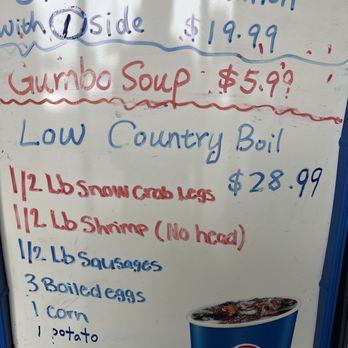 with 1 side $19.99
Gumbo Soup $5.99
Low Country Boil
1/2 Lb Snow Crab Legs $28.99
1/2 Lb Shrimp (No head)
1/2 Lb Sausages
3 Boiled eggs
1 corn
1 potato